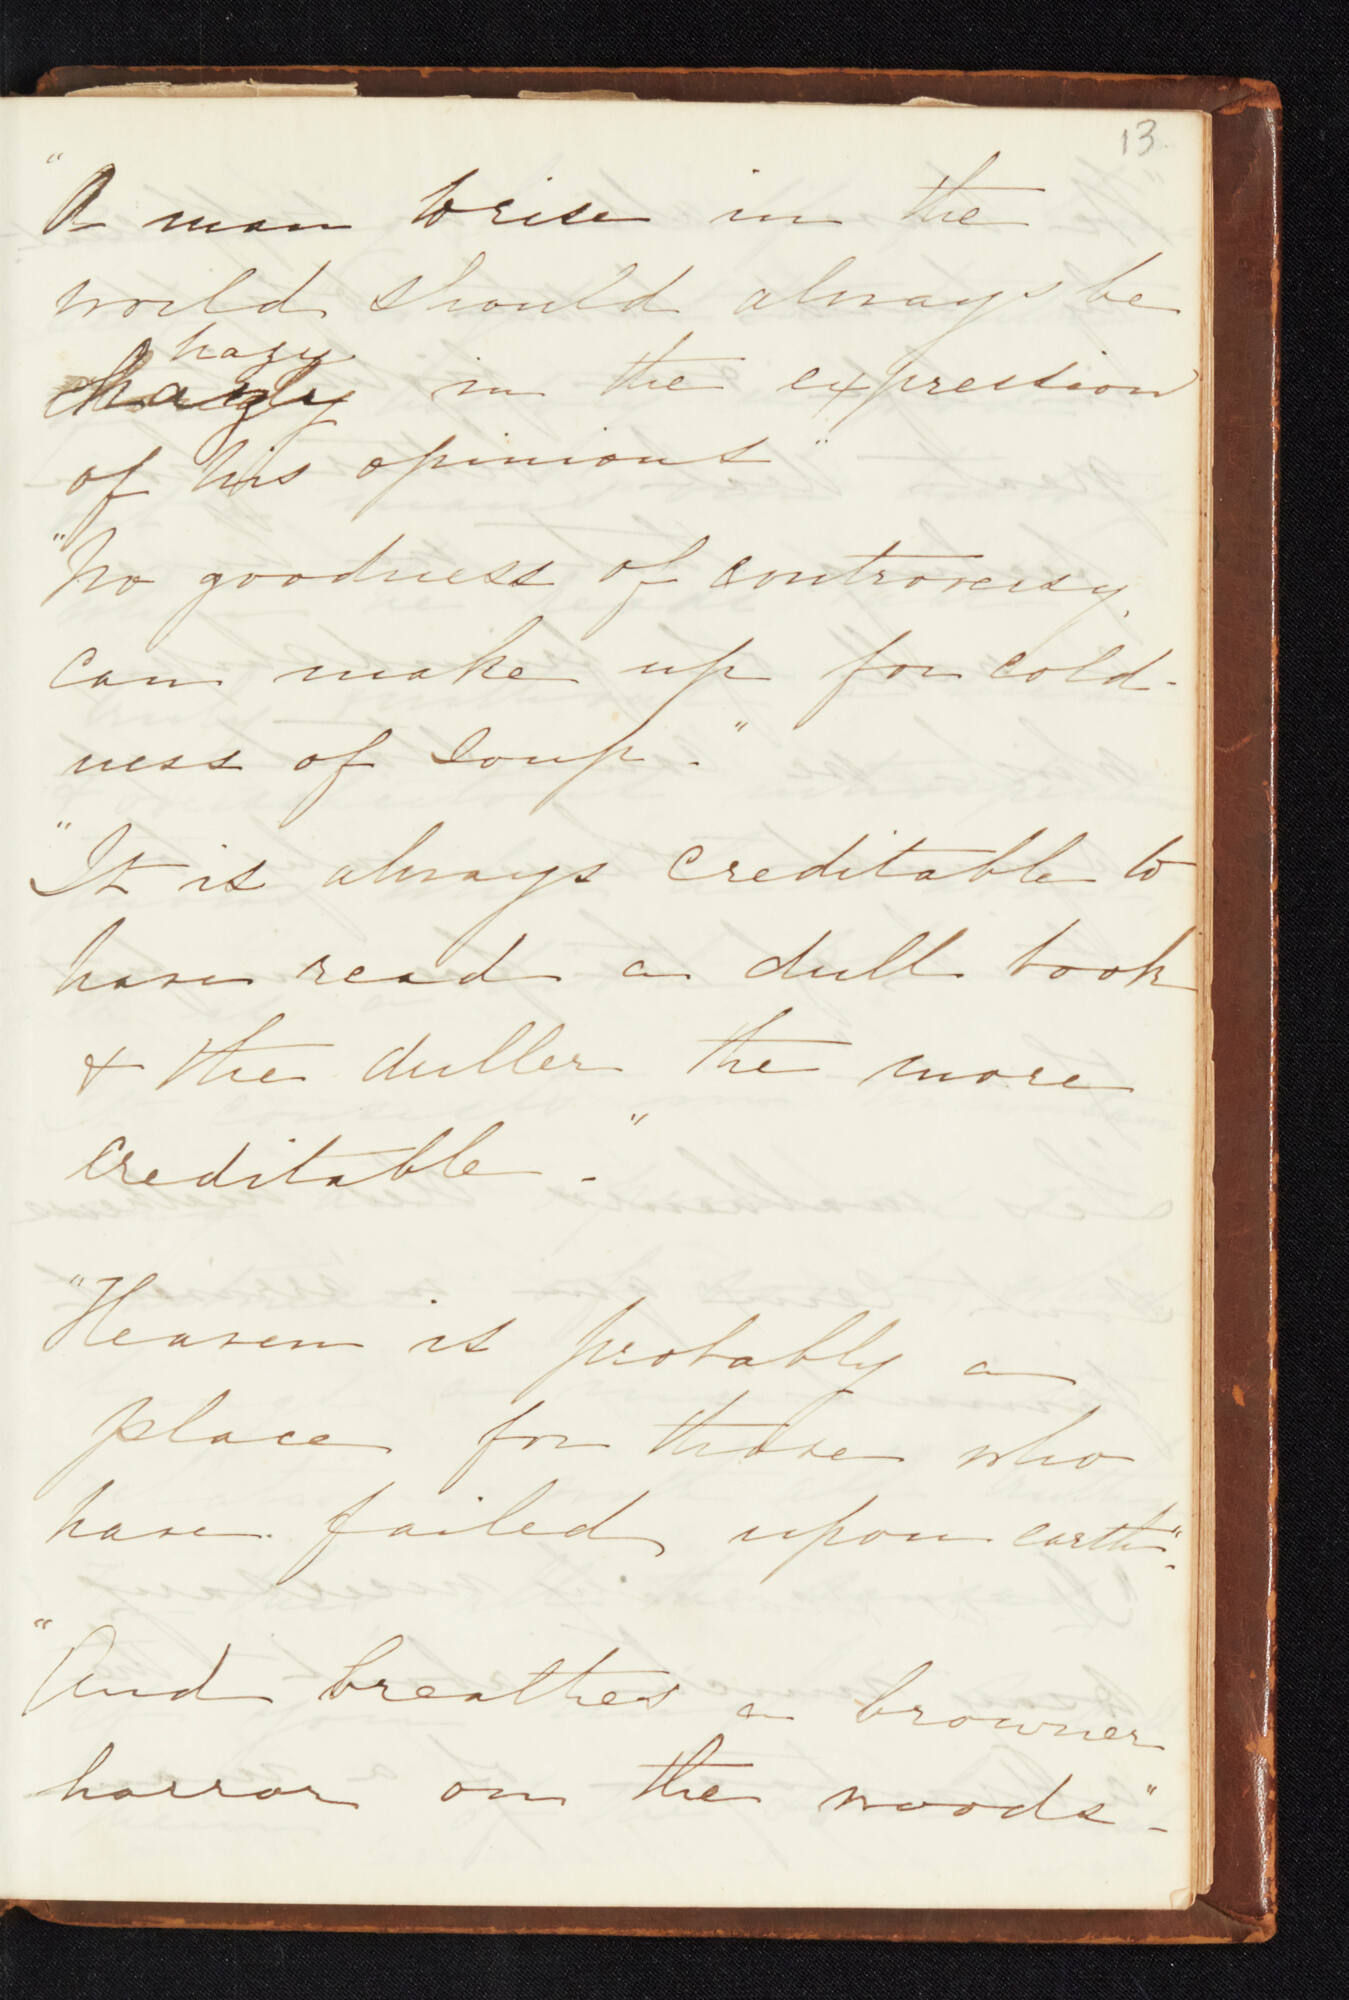 13.
"A man to rise in the
world should always be
hazy
hazy in the expression
of his opinions"
"No goodness of controversy
can make up for cold-
ness of soup."
"It is always creditable to
have read a dull book
& the duller the more
creditable."
"Heaven is probably a
place for those who
have failed upon earth".
"And breathes a browner
horror on the woods".